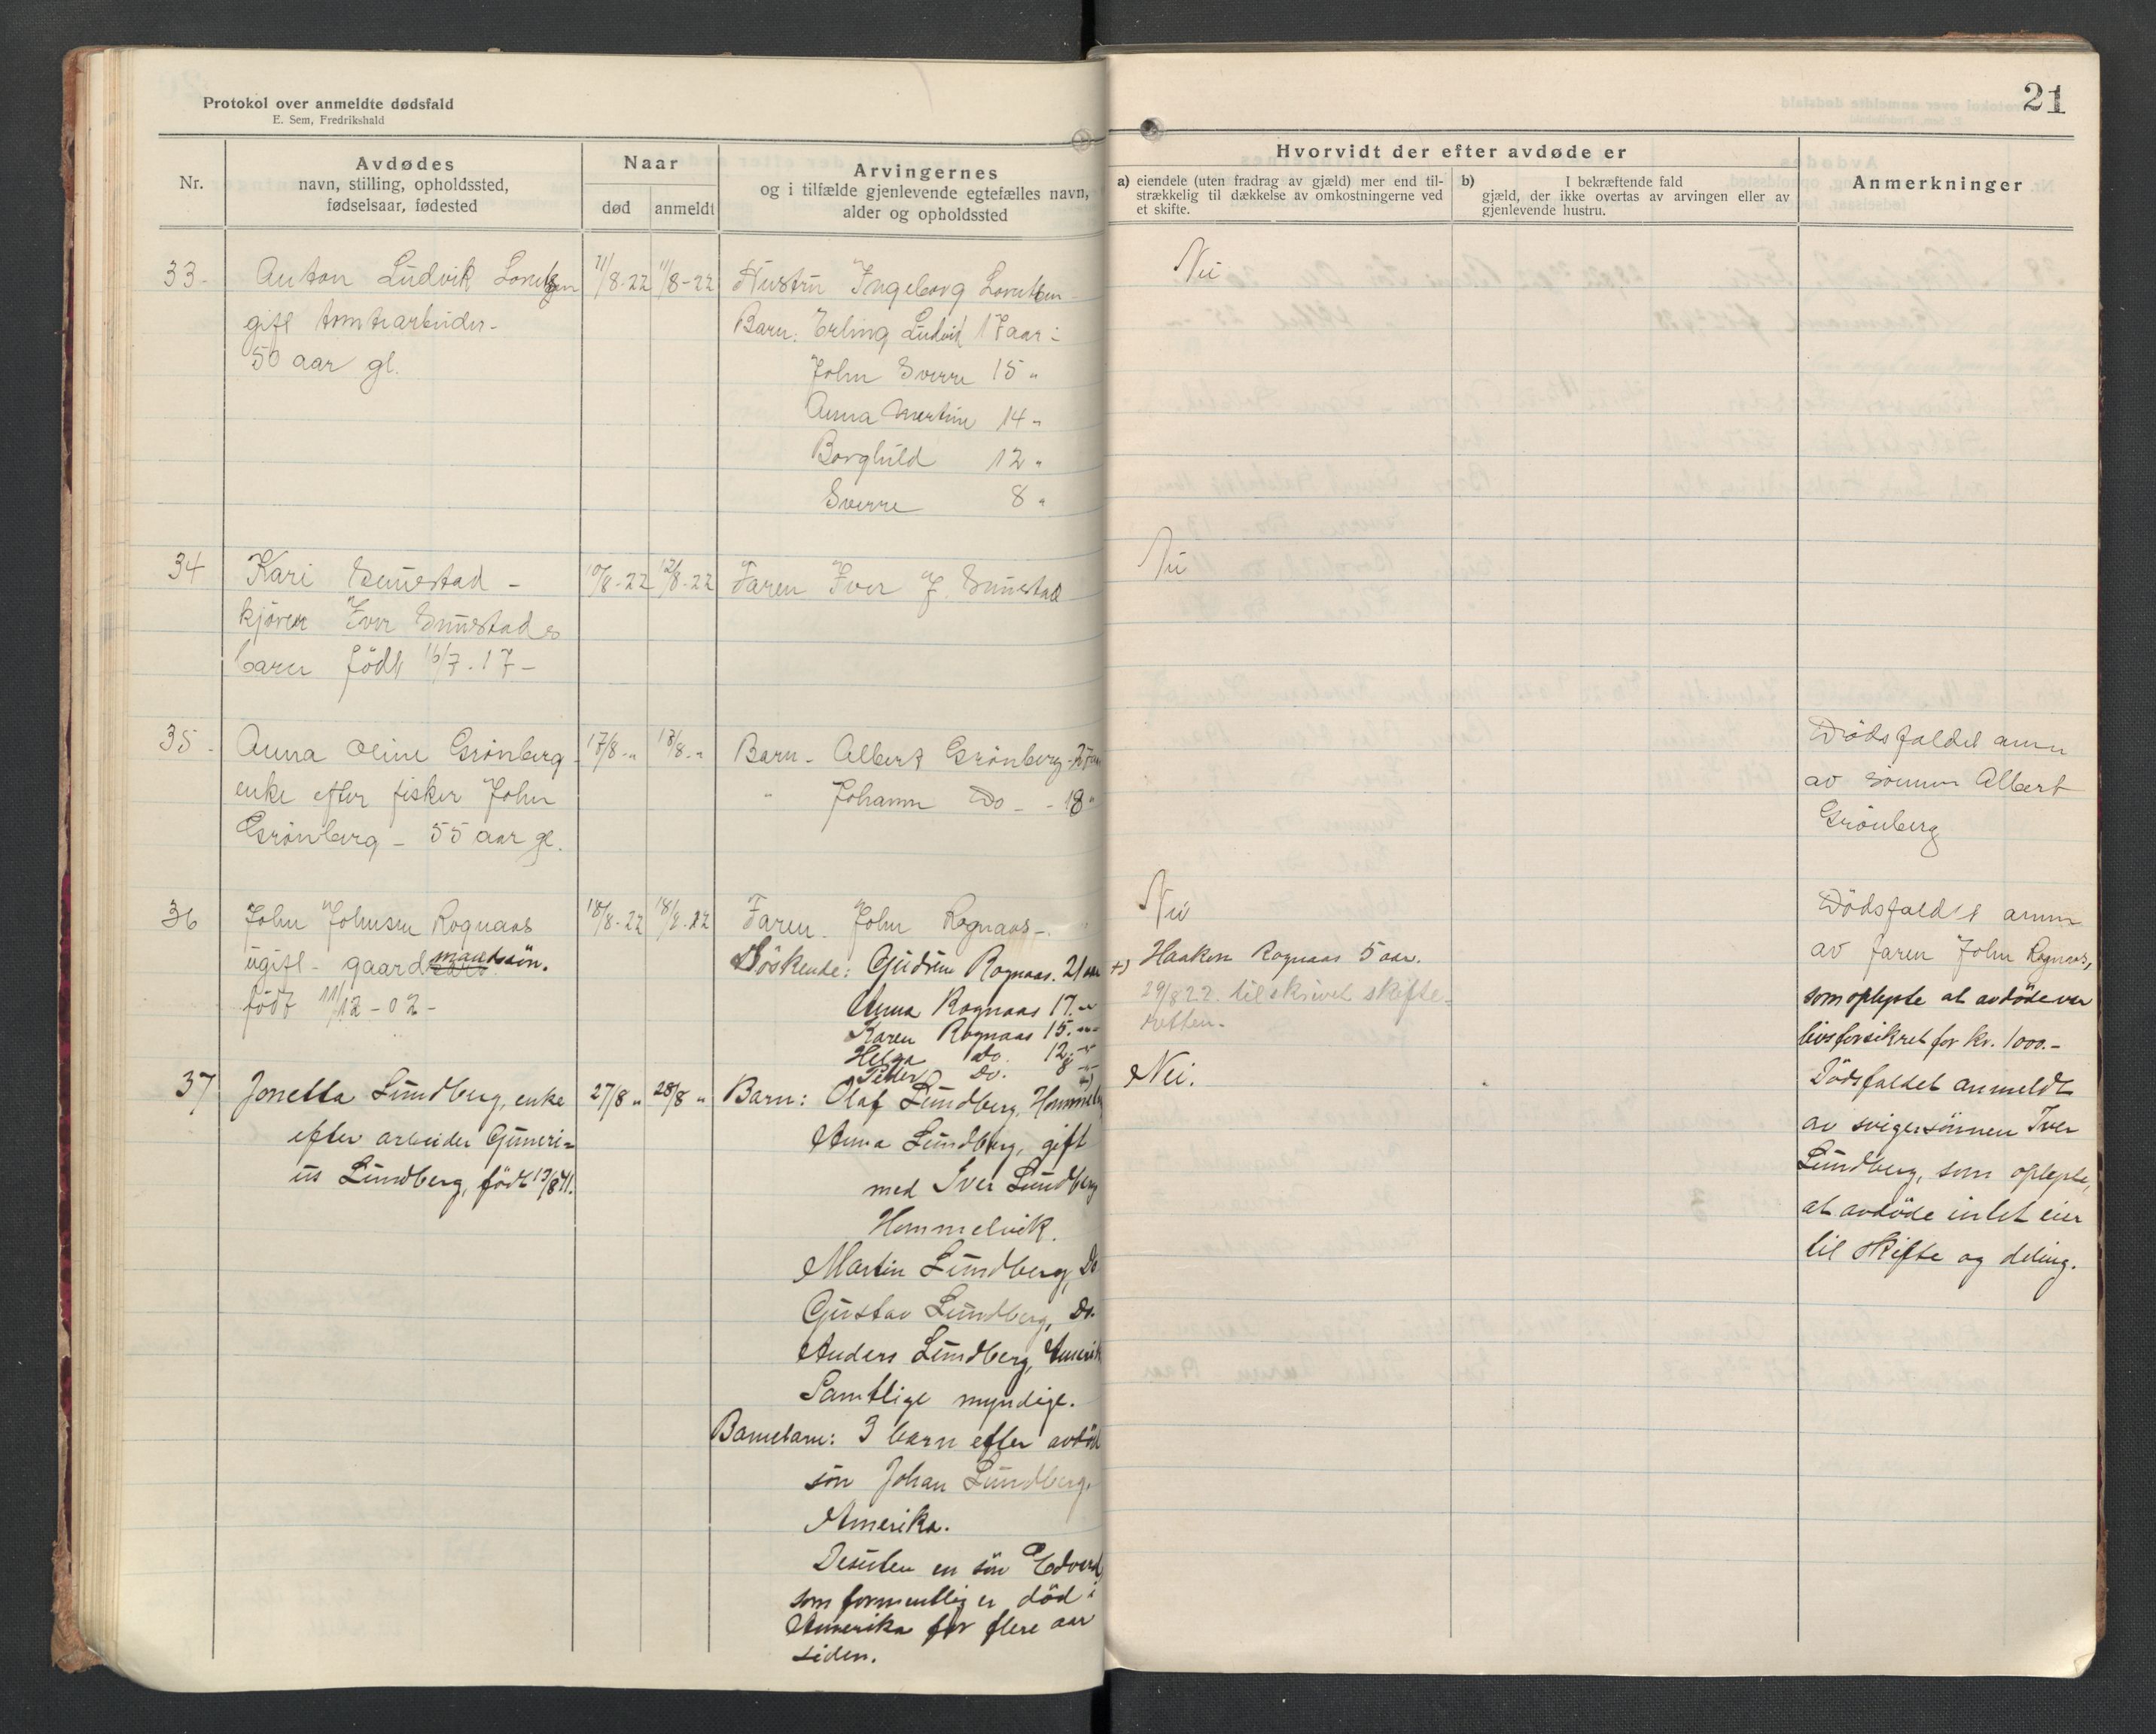 Protokol over anmeldte dødsfald
E. Sem, Fredrikshald
21
Nr.
Avdødes
navn, stilling, opholdssted,
fødselsaar, fødested
Naar
død
anmeldt
Arvingernes
og i tilfælde gjenlevende egtefælles navn,
alder og opholdssted
Hvorvidt der efter avdøde er
a) eiendele (uten fradrag av gjæld) mer end til-
strækkelig til dækkelse av omkostningerne ved
et skifte.
b) I bekræftende fald
gjæld, der ikke overtas av arvingen eller av
gjenlevende hustru.
Anmerkninger
33-
Anton Ludvik Lorntsen
gift tomtearbeider-
50 aar gl.
11/8-22
11/8-22
Hustru Ingeborg Lorntsen-
Barn: Erling Ludvik 17 aar-
John Sverre 15 "
Anna Martine 14 "
Borghild 12 "
Sverre 8 "
Nei
34
Kari Smiestad -
kjører Iver Smiestads
barn født 16/7.17-
10/8-22
12/8-22
Faren Iver J. Smiestad
Nei
35-
Anna Oline Grönberg
enke efter fisker John
Grönberg - 55 aar gl.
17/8-"
18/8-"
Barn - Albert Grönberg - 27 aar
" Johann Do - - 18 "
Dödsfaldet anm
av sönnen Albert
Grönberg
36
John Johnsen Rognaas
ugift - gaardmandssön.
födt 11/12-02-
18/8-22
18/8-22
Faren. John Rognaas-.
Söskende: Gudrun Rognaas. 21 aar
Anna Rognaas 17. -"-
Karen Rognaas 15. -"-
Helga do. 12. -"-
Petter Do. 8 -"- +)
Nei
+) Haakon Rognaas 5 aar.
29/8 22. tilskrivet skifte-
retten.
Dödsfaldet anm
av faren John Rognaas,
som oplyste at avdöde var
livsforsikret for kr. 1000.-
37
Jonetta Lundberg, enke
efter arbeider Guneri-
us Lundberg, födt 19/8 41.
27/8 "
28/8 "
Barn: Olaf Lundberg, Hommelv
Anna Lundberg, gift
med Iver Lundberg
Hommelvik.
Martin Lundberg, Do
Gustav Lundberg, Do.
Anders Lundberg, Amerik
Samtlige myndige.
Barnebarn: 3 barn efter avdöd
sön Johan Lundberg,
Amerika.
Desuten en sön Edvard,
som formentlig er död i
Amerika for flere aar
siden.
Nei.
Dödsfaldet anmeldt
av svigersönnen Iver
Lundberg, som oplyste,
at avdöde intet eier
til skifte og deling.